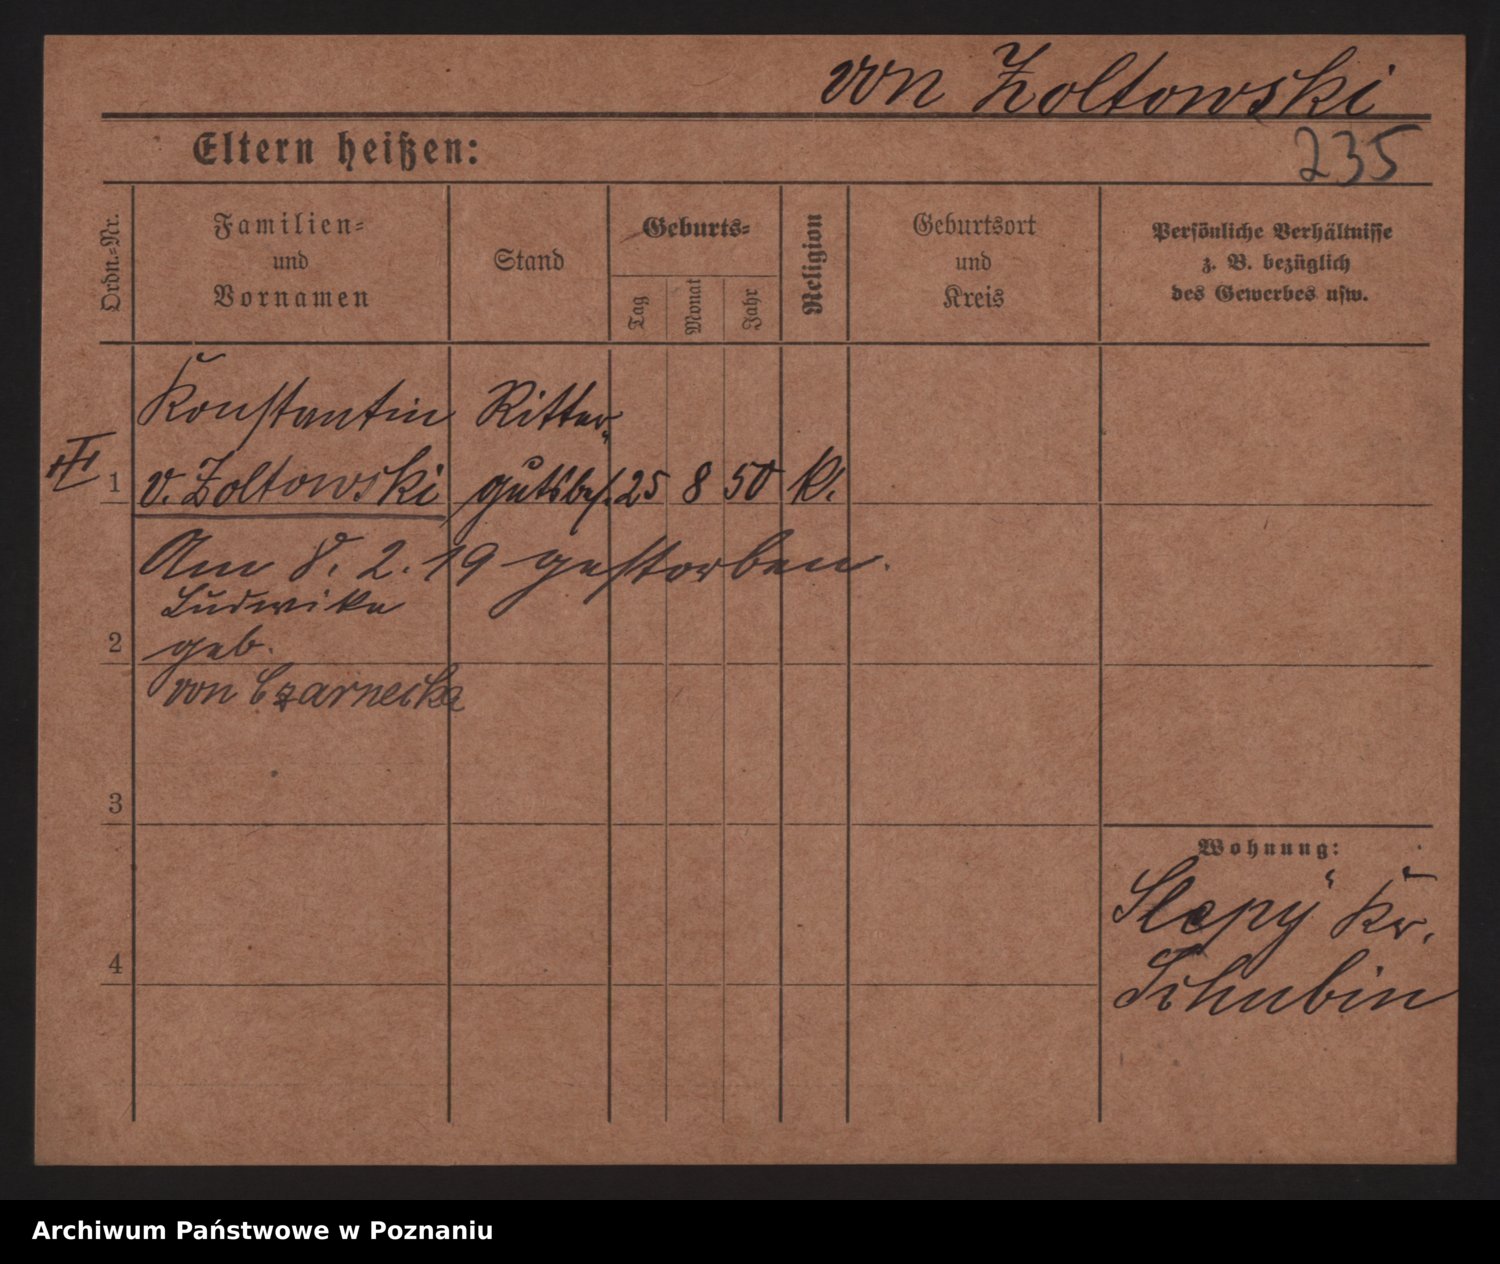 von Zoltowski
Eltern heißen:
235
Ordn.-Nr.
Familien-
und
Vornamen
Stand
Geburts-
Tag
Monat
Jahr
Religion
Geburtsort
und
Kreis
Persönliche Verhältnisse
z. B. bezüglich
des Gewerbes usw.
Konstantin Ritter-
1 v. Zoltowski gutsbes. 25 8 50 K.
Am 8. 2. 19 gestorben.
Ludwika
2 geb.
von Czarnecka
3
Wohnung:
Slepy Kr.
4
Schubin
Archiwum Państwowe w Poznaniu